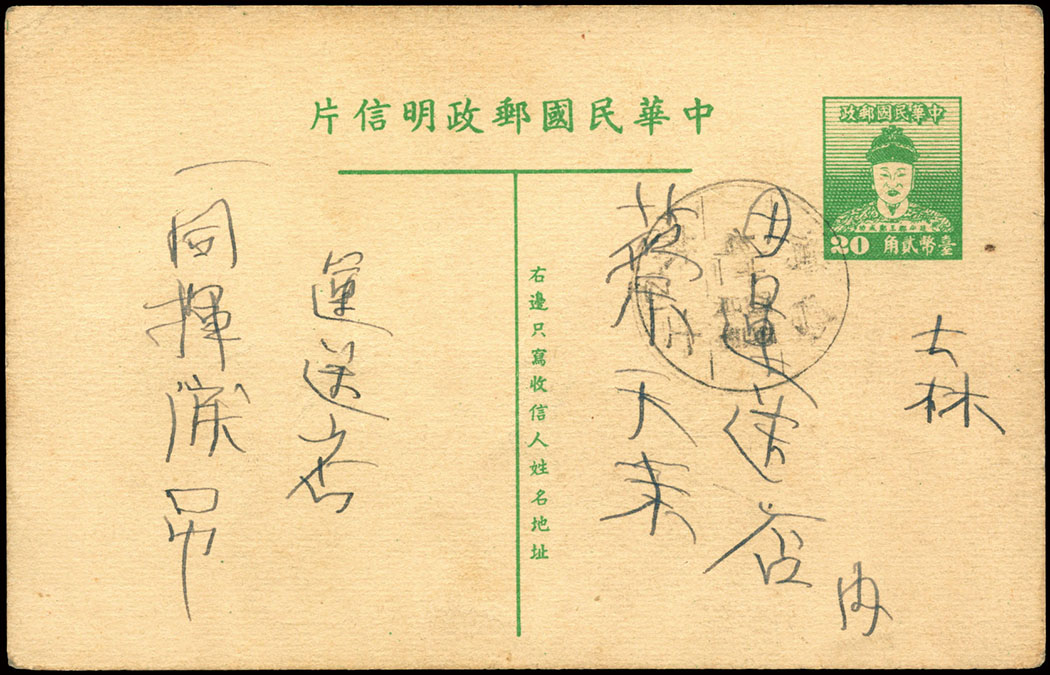 中華民國郵政明信片
中華民國郵政
20 臺幣貳角
士林
由運送店
內
天来
右邊只寫收信人姓名地址
運送店
一同揮淚吊